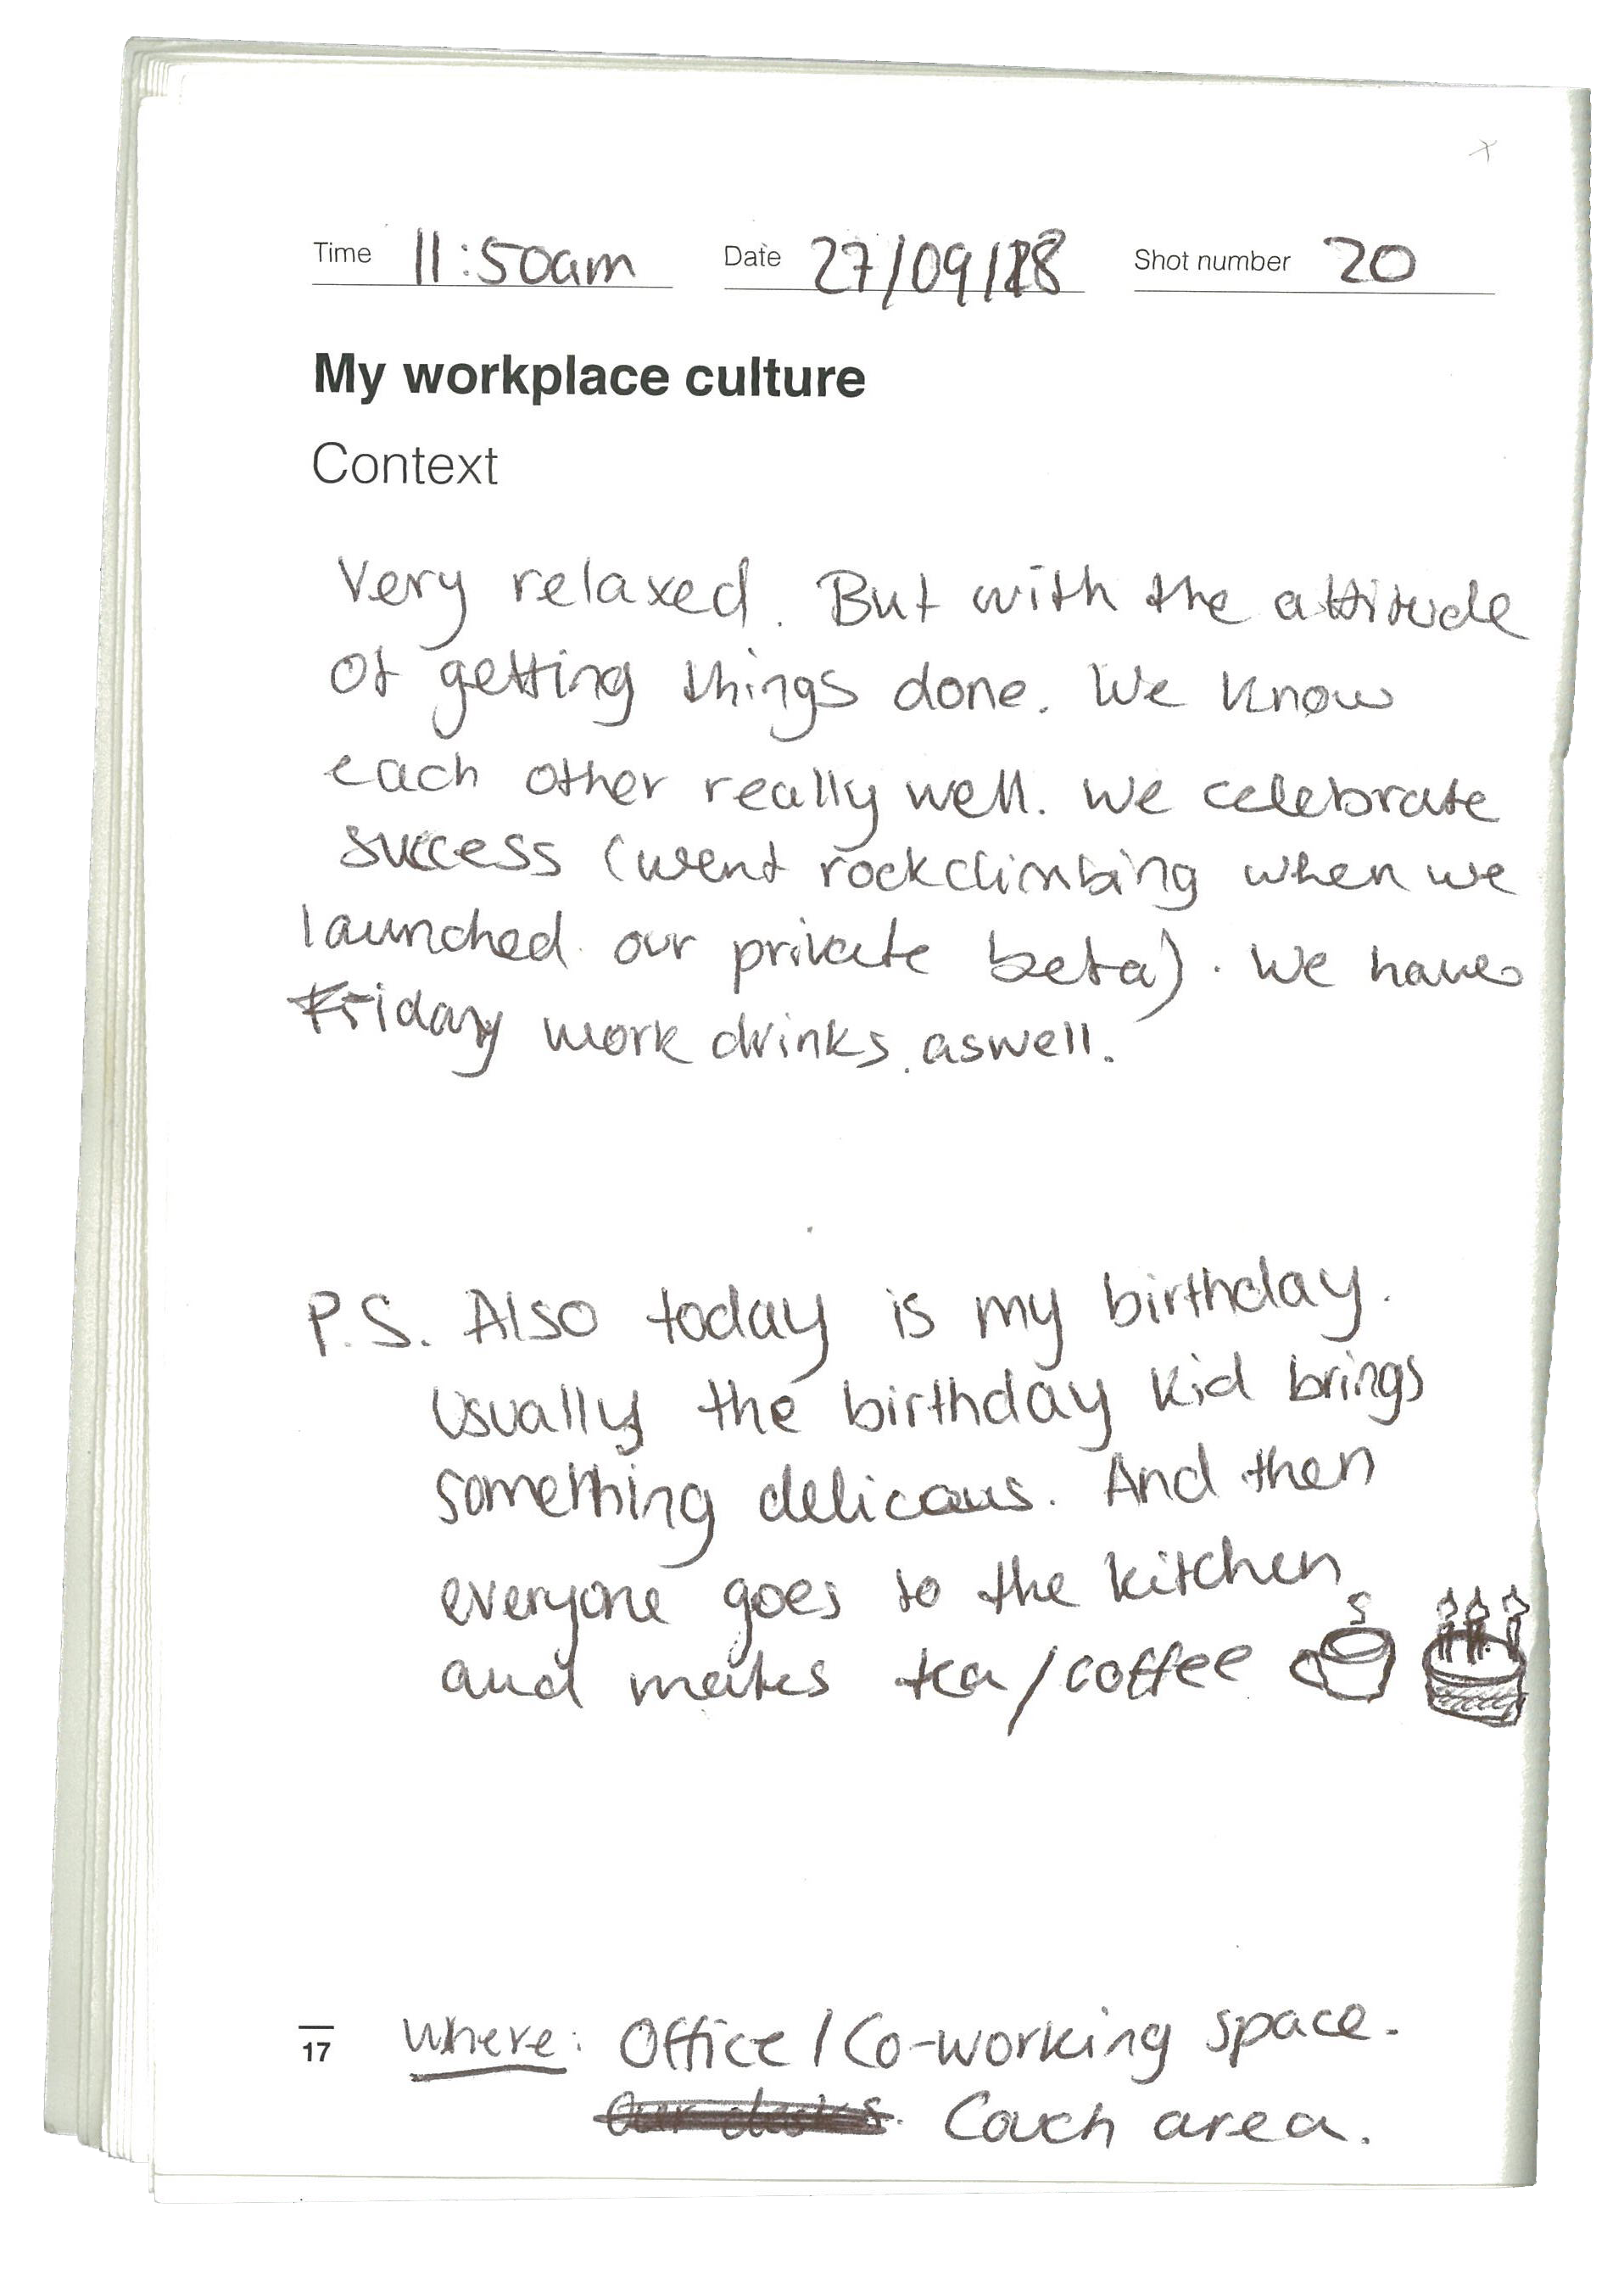 Time 11:50am Date 27/09/18 Shot number 20
My workplace culture
Context
Very relaxed. But with the attitude
of getting things done. We know
each other really well. We celebrate
success (went rockclimbing when we
launched our private beta). We have
Friday work drinks aswell.
P.S. Also today is my birthday.
Usually the birthday kid brings
something delicous. And then
everyone goes to the kitchen
and makes tea/coffee
17 Where: Office/Co-working space.
Couch area.